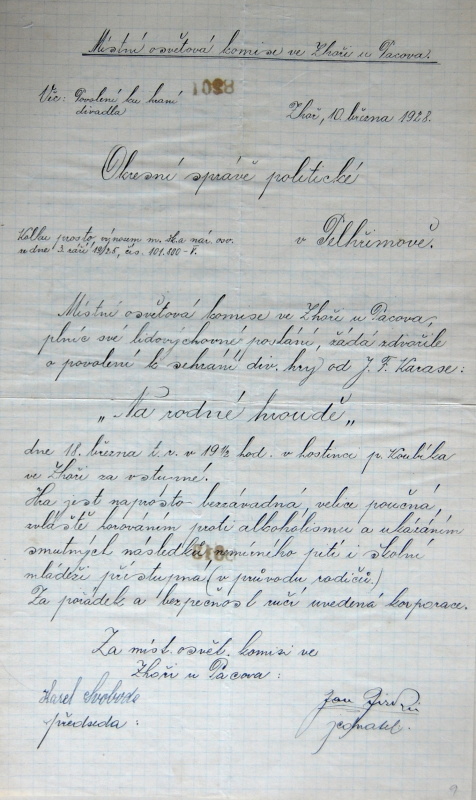 Místní osvětová komise ve Zhoři u Pacova.
Věc: Povolení ku hraní
divadla
Zhoř, 10. března 1928.
Okresní správě politické
v Pelhřimově.
Kolku prosto, výnosem m. šk. a nár. osv.
ze dne 3. září 1925, čís. 101.100-V.
Místní osvětová komise ve Zhoři u Pacova,
plníc své lidovýchovné poslání, žádá zdvořile
o povolení k sehrání div. hry od J. F. Karase:
„Na rodné hroudě„
dne 18. března t. r. v 19 1/2 hod. v hostinci p. Koubíka
ve Zhoři za vstupné.
Hra jest naprosto bezzávadná, velice poučná,
zvláště horováním proti alkoholismu a ukázáním
smutných následků nemírného pití i školní
mládeži přístupna (v průvodu rodičů.)
Za pořádek a bezpečnost ručí uvedená korporace.
Za míst. osvět. komisi ve
Zhoři u Pacova:
Karel Svoboda
předseda:
Jan
jednatel.